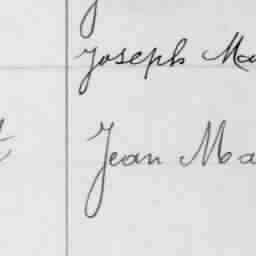 Joseph Ma
Jean Ma